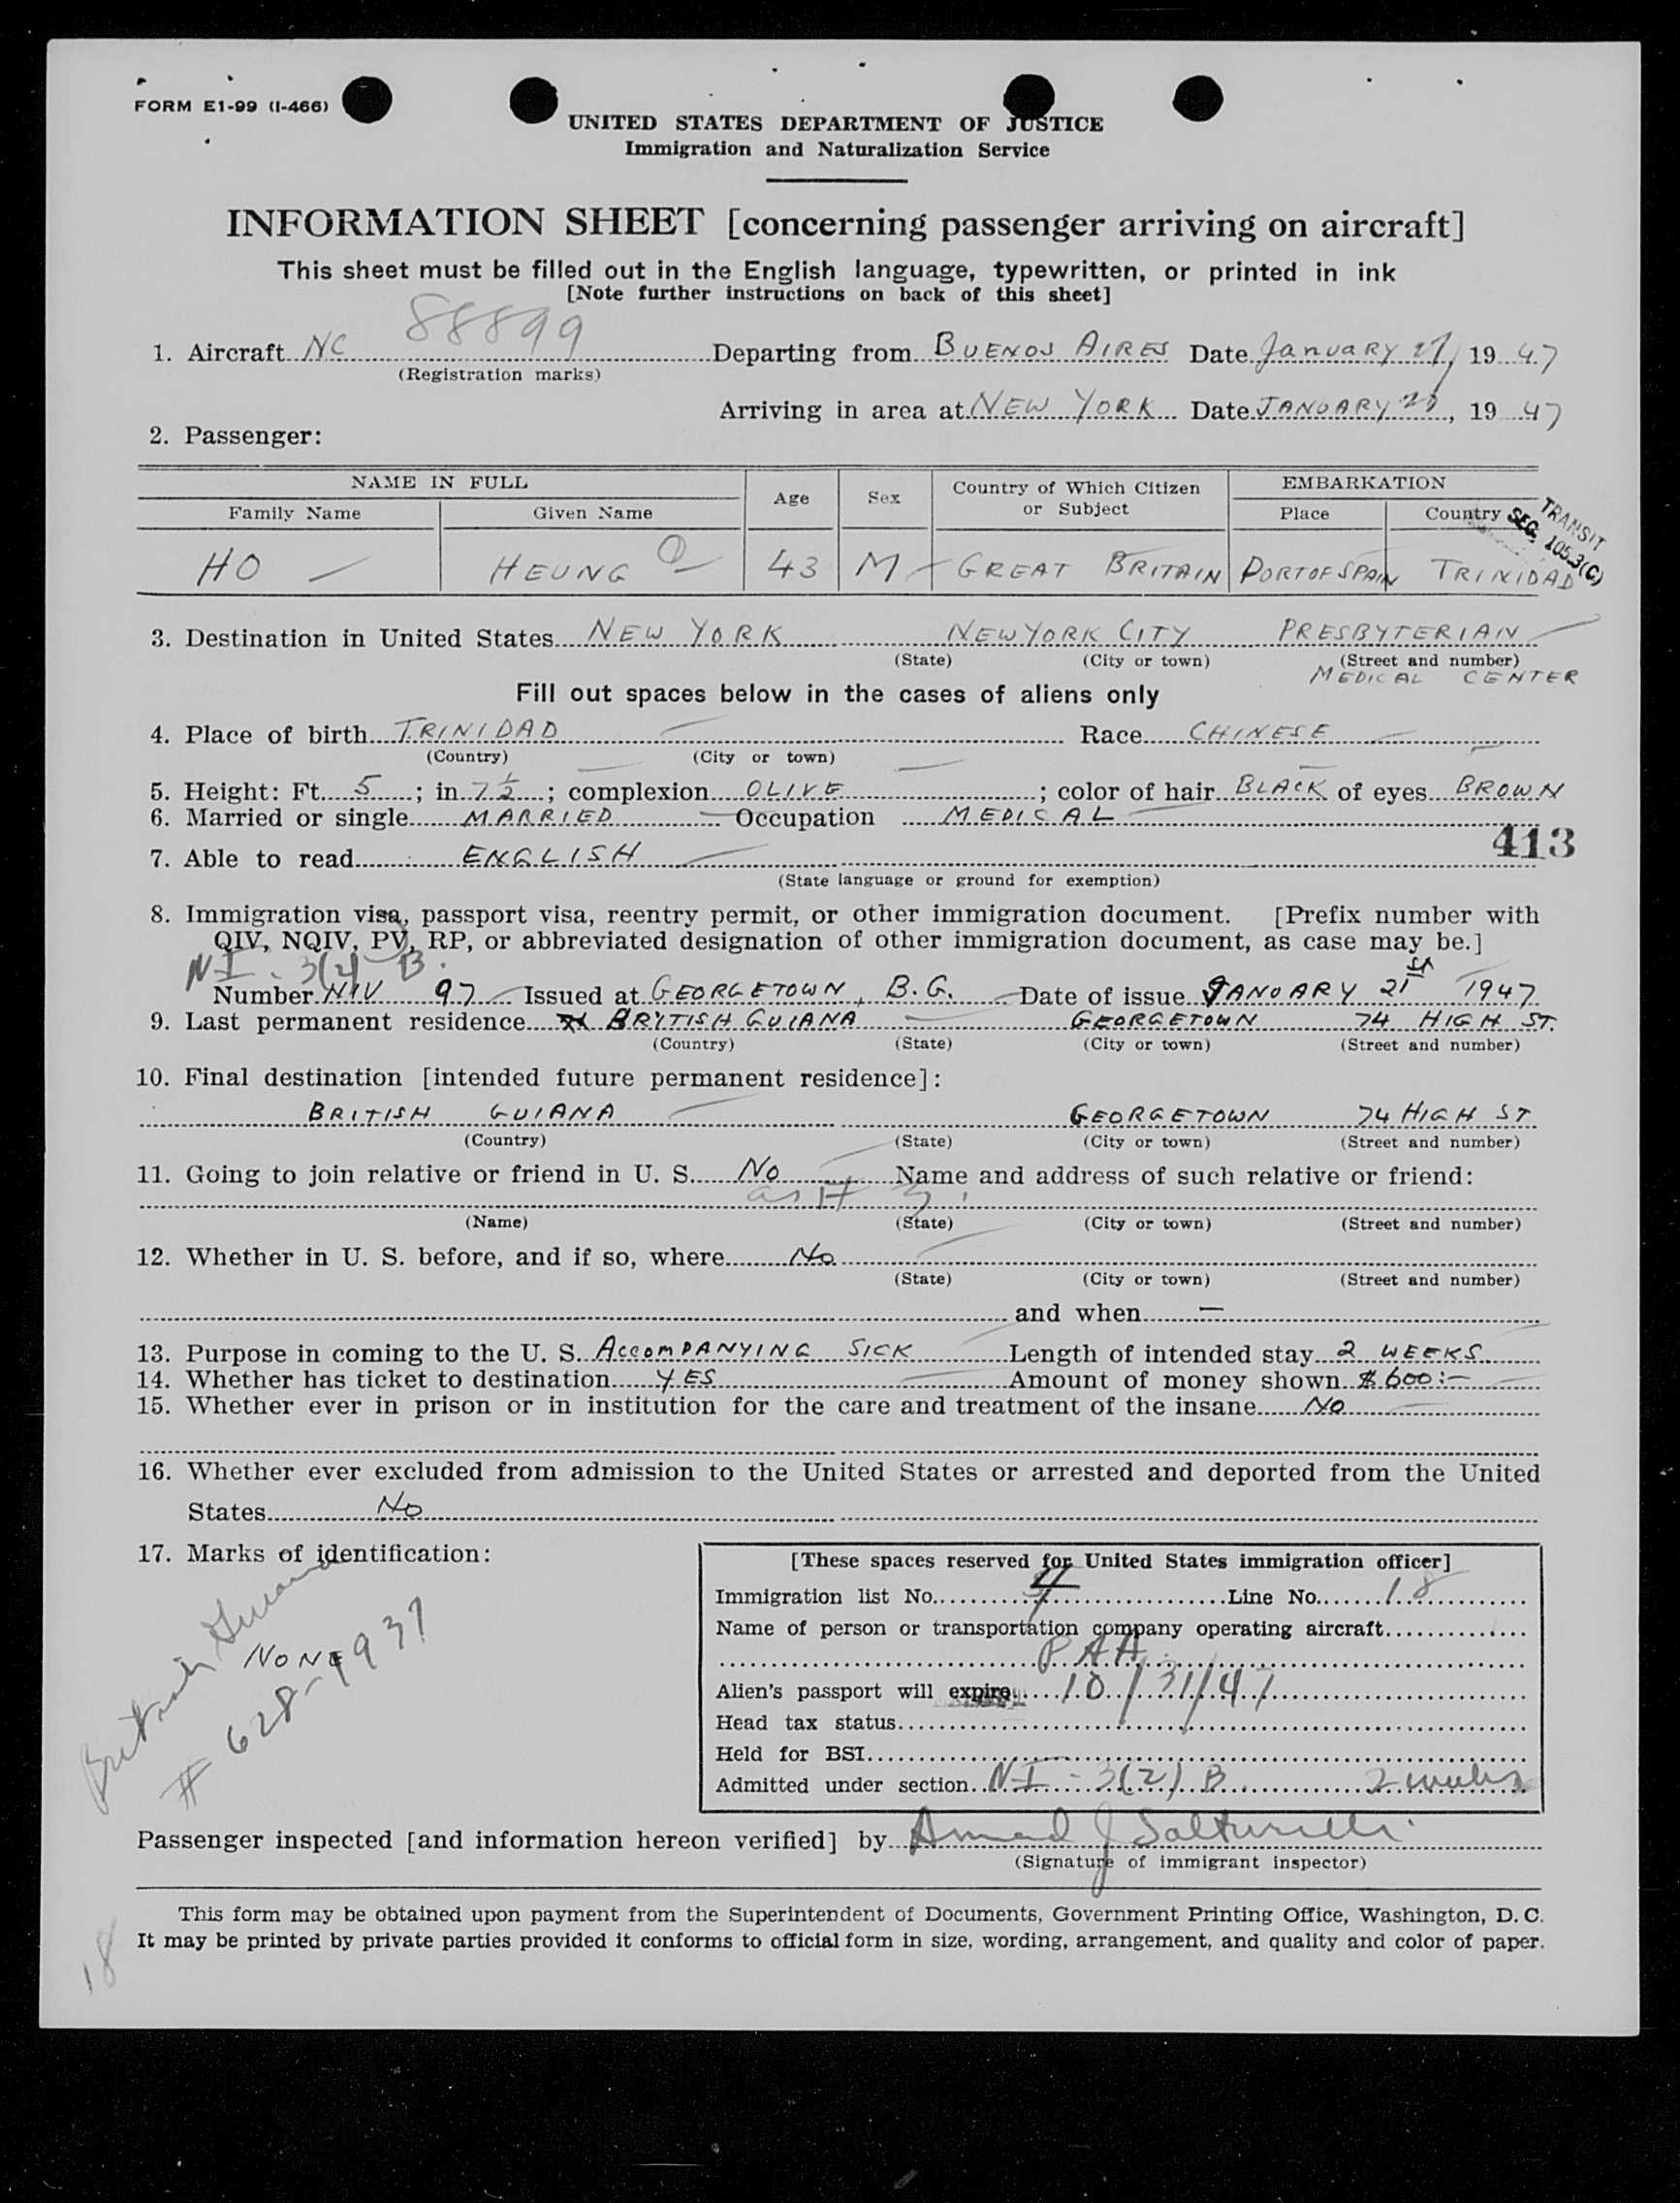 FORM E1-99 (I-466)
UNITED STATES DEPARTMENT OF JUSTICE
Immigration and Naturalization Service
INFORMATION SHEET [concerning passenger arriving on aircraft]
This sheet must be filled out in the English language, typewritten, or printed in ink
[Note further instructions on back of this sheet]
1. Aircraft NC 88899 Departing from BUENOS AIRES Date JANUARY 27, 1947
(Registration marks)
Arriving in area at NEW YORK Date JANUARY , 1947
2. Passenger:
NAME IN FULL Age Sex Country of Which Citizen or Subject EMBARKATION
Family Name Given Name Place Country
TRANSIT
SEC. 105.3(C)
HO HEUNG Q 43 M GREAT BRITAIN PORT OF SPAIN TRINIDAD
3. Destination in United States NEW YORK NEW YORK CITY PRESBYTERIAN
(State) (City or town) (Street and number)
MEDICAL CENTER
Fill out spaces below in the cases of aliens only
4. Place of birth TRINIDAD Race CHINESE
(Country) (City or town)
5. Height: Ft. 5; in. 7½; complexion OLIVE; color of hair BLACK of eyes BROWN
6. Married or single MARRIED Occupation MEDICAL
413
7. Able to read ENGLISH
(State language or ground for exemption)
8. Immigration visa, passport visa, reentry permit, or other immigration document. [Prefix number with
QIV, NQIV, PV, RP, or abbreviated designation of other immigration document, as case may be.]
NI - 3(2) B.
Number NIV 97 Issued at GEORGETOWN, B.G. Date of issue JANUARY 21st 1947
9. Last permanent residence BRITISH GUIANA GEORGETOWN 74 HIGH ST.
(Country) (State) (City or town) (Street and number)
10. Final destination [intended future permanent residence]:
BRITISH GUIANA GEORGETOWN 74 HIGH ST
(Country) (State) (City or town) (Street and number)
11. Going to join relative or friend in U. S. No Name and address of such relative or friend:
as # 3
(Name) (State) (City or town) (Street and number)
12. Whether in U. S. before, and if so, where No
(State) (City or town) (Street and number)
and when —
13. Purpose in coming to the U. S. ACCOMPANYING SICK Length of intended stay 2 WEEKS
14. Whether has ticket to destination YES Amount of money shown $600:—
15. Whether ever in prison or in institution for the care and treatment of the insane NO
16. Whether ever excluded from admission to the United States or arrested and deported from the United
States No
17. Marks of identification:
NONE
British Guiana
# 628-1937
[These spaces reserved for United States immigration officer]
Immigration list No. Line No. 18
Name of person or transportation company operating aircraft
PAA
Alien's passport will expire 10/31/47
Head tax status
Held for BSI
Admitted under section NI - 3(2) B 2 weeks
Passenger inspected [and information hereon verified] by Armand J Salturelli
(Signature of immigrant inspector)
This form may be obtained upon payment from the Superintendent of Documents, Government Printing Office, Washington, D. C.
It may be printed by private parties provided it conforms to official form in size, wording, arrangement, and quality and color of paper.
18